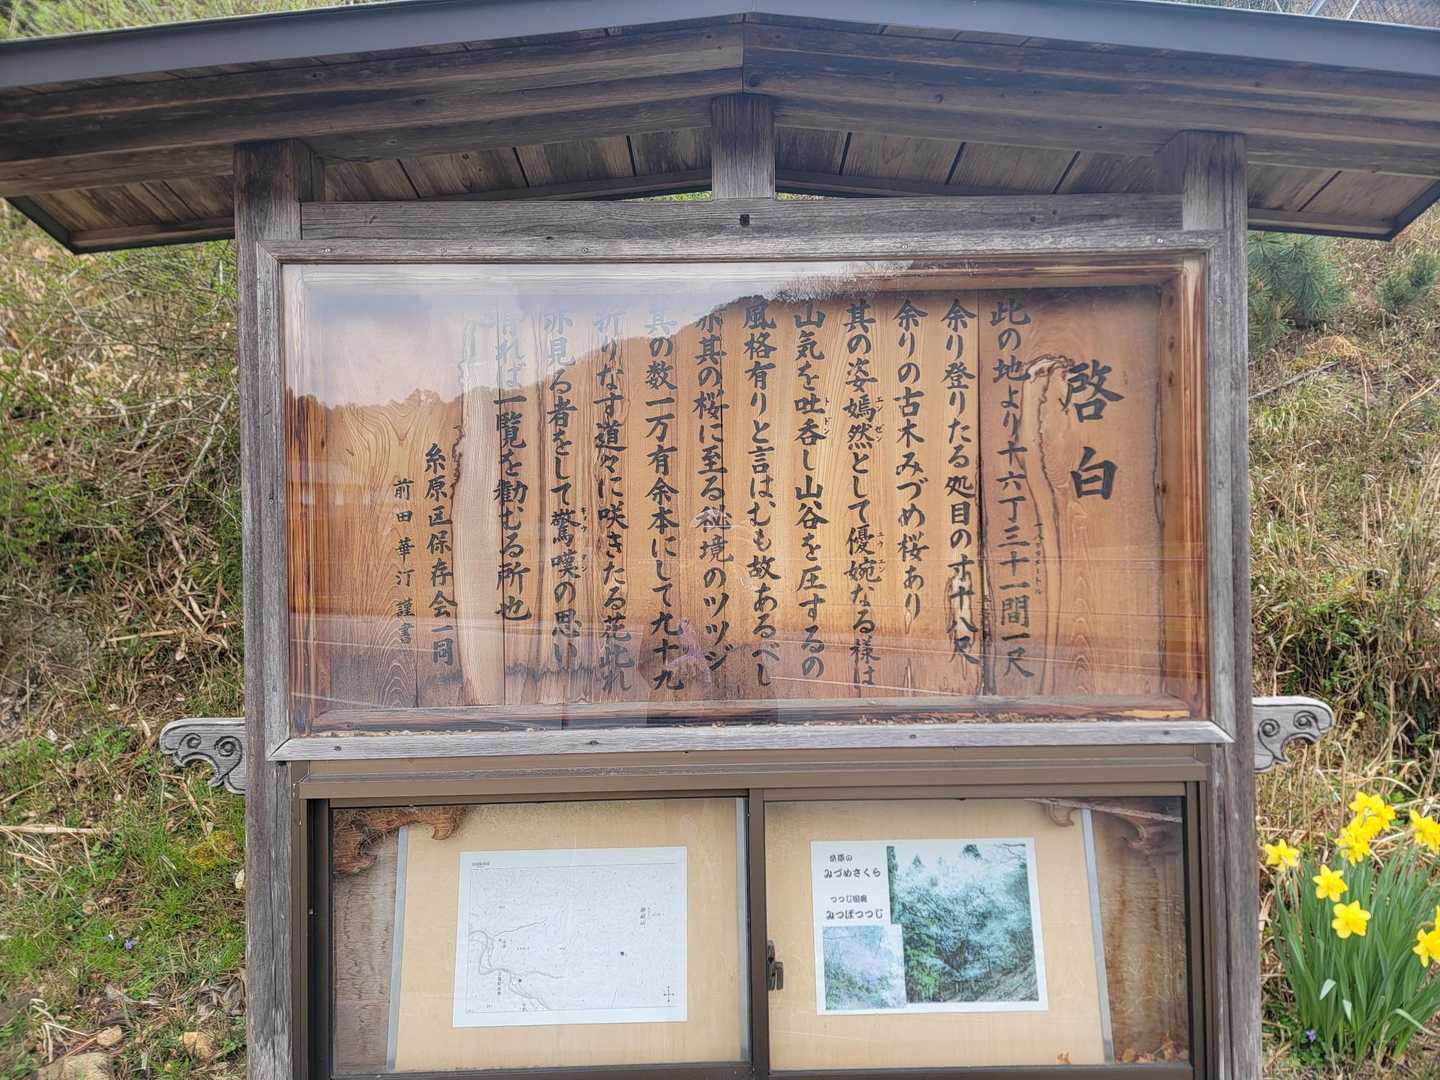 啓白
此の地より十六丁三十一間一尺
余り登りたる処目の寸十八尺
余りの古木みづめ桜あり
其の姿嫣然として優婉なる様は
エンゼン
ユウエン
山気を吐呑し山谷を圧するの
トドン
風格有りと言はむも故あるべし
亦其の桜に至る秘境のツツジ
其の数一万有余本にして九十九
折りなす道々に咲きたる花此れ
亦見る者をして驚嘆の思い
有れば一覧を勧むる所也
糸原区保存会一同
前田華汀 謹書
糸原の
みづめさくら
つつじ回廊
みつばつつじ